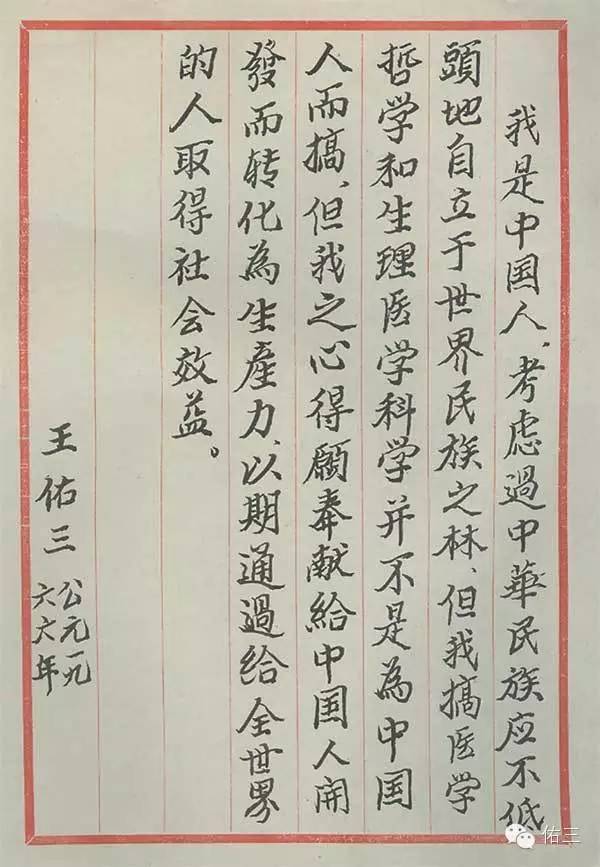 我是中国人、考虑過中華民族应不低
頭地自立于世界民族之林、但我搞医学
哲学和生理医学科学并不是為中国
人而搞、但我之心得願奉献給中国人開
發而转化為生產力、以期通過给全世界
的人取得社会效益。
王佑三 公元一九
六六年
佑三